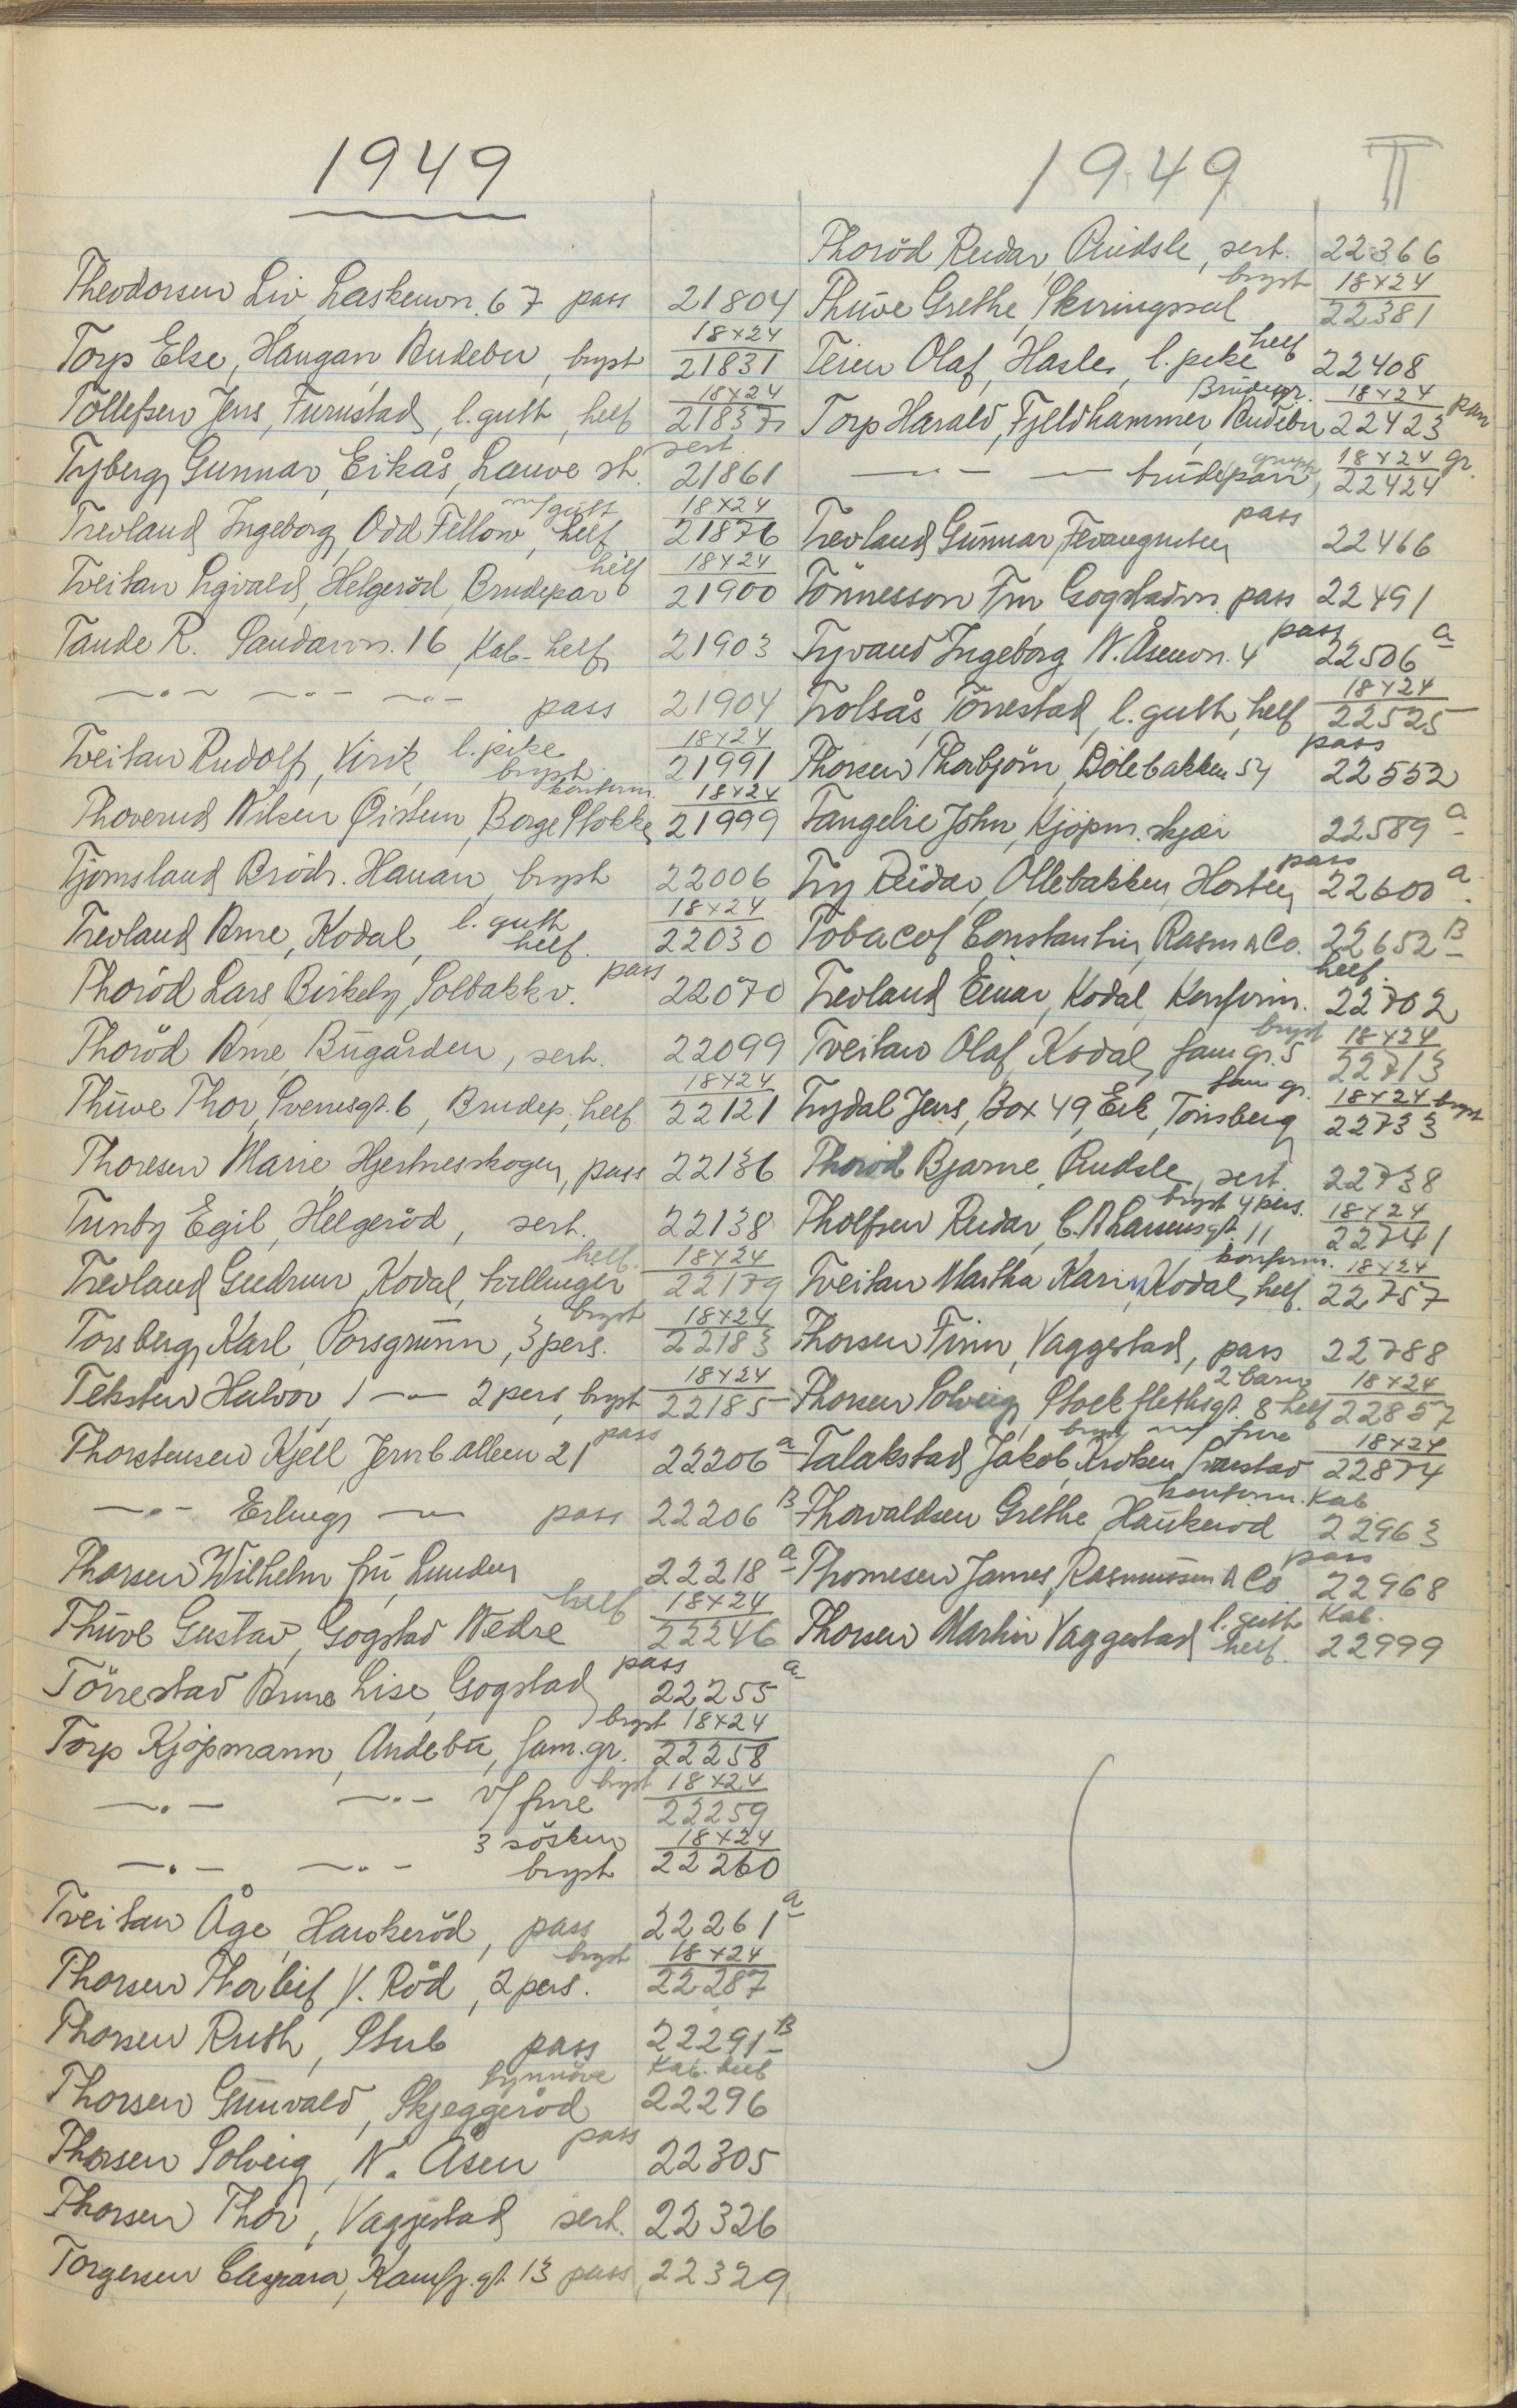 1949
Theodorsen Liv, Laskenvn. 67 pass 21804
Torp Else, Haugan Andebu, bryst 18x24 21831
Tollefsen Jens, Furustad, l. gutt, helf 18x24 21837
Tyberg Gunnar, Eikås, Lauve st. sert. 21861
Trevland Ingeborg, Odd Fellow, m/gutt helf 18x24 21876
Tveitan Sigvald, Helgeröd, Brudepar helf 18x24 21900
Tande R. Sandarvn. 16, Kab-helf 21903
—·— —·— —·— pass 21904
Tveitan Rudolf, Virik, l. pike bryst 18x24 21991
Thoverud Nilsen Øistein, Borge Stokke konfirm. 18x24 21999
Tjomsland Brödr. Hauan, bryst 22006
Trevland Arne, Kodal, l. gutt helf. 18x24 22030
Thoröd Lars, Birkely, Solbakkv. pass 22070
Thoröd Arne, Bugården, sert. 22099
Thuve Thor, Sverresgt. 6, Brudep. helf 18x24 22121
Thoresen Marie, Hjertnesskogen, pass 22136
Tunby Egil, Helgeröd, sert. 22138
Trevland Gudrun, Kodal, tvillinger helf. 18x24 22179
Torsberg Karl, Porsgrunn, 3 pers. bryst 18x24 22183
Teksten Halvor, — 2 pers, bryst 18x24 22185
Thorstensen Kjell, Jernb.alleen 21 pass 22206 a
—·— Erling — pass 22206 B
Thorsen Wilhelm fru, Lunden 22218 a
Thuve Gustav, Gogstad Nedre helf 18x24 22246
Törrestad Anne Lise, Gogstad pass 22255 a
Torp Kjøpmann, Andebu, fam.gr. bryst 18x24 22258
—·— —·— m/frue bryst 18x24 22259
—·— —·— 3 søsken bryst 18x24 22260
Tveitan Åge, Haukeröd, pass 22261 a
Thorsen Thorleif, V. Röd, 2 pers. bryst 18x24 22287
Thorsen Ruth, Stub pass 22291 B
Thorsen Gunvald, Skjeggeröd Synnöve Kab. helf 22296
Thorsen Solveig, N. Åsen pass 22305
Thorsen Thor, Vaggestad sert. 22326
Torgersen Caspara, Kamfj.gt 13 pass 22329
1949 T
Thoröd Reidar, Pindsle, sert. 22366
Thuve Grethe, Skiringssal bryst 18x24 22381
Teien Olaf, Hasle, l. pike helf 22408
Torp Harald, Fjellhammer, Andebu Brudepr. 18x24 22423 par
—·— — brudepar, gruppe 18x24 22424 gr.
Trevland Gunnar, Fevangruten pass 22466
Tönnesson Fru Gogstadvn. pass 22491
Tyvand Ingeborg N. Åsenvn. 4 pass 22506 a
Trolsås, Törrestad, l. gutt, helf 18x24 22525
Thorsen Thorbjörn, Dölebakken 54 pass 22552
Tangelie John, Kjöpm. skjær 22589 a
Try Reidar, Ollebakken, Horten pass 22600 a
Tobacof Constantin, Rasm A Co. 22652 B
Trevland Einar, Kodal, Konfirm. helf. 22702
Tveitan Olaf, Kodal, fam gr. 5 bryst 18x24 22713
Trydal Jens, Box 49, Eik, Tönsberg fam gr. 18x24 bryst 22733
Thoröd Bjarne, Pindsle, sert. 22738
Tholfsen Reidar, C. A Larsensgt. 11 bryst 4 pers. 18x24 22741
Tveitan Martha Karin, Kodal, helf. konfirm. 18x24 22757
Thorsen Finn, Vaggestad, pass 22788
Thorsen Solveig, Stockflethsgt. 8 helf 2 barn 18x24 22857
Talakstad Jakob, Kroken Svarstad bryst m/ frue 18x24 22874
Thorvaldsen Grethe, Haukerød konfirm. Kab. 22963
Thomesen James, Rasmussen A Co pass 22968
Thorsen Martin Vaggestad l. gutt helf. Kab. 22999